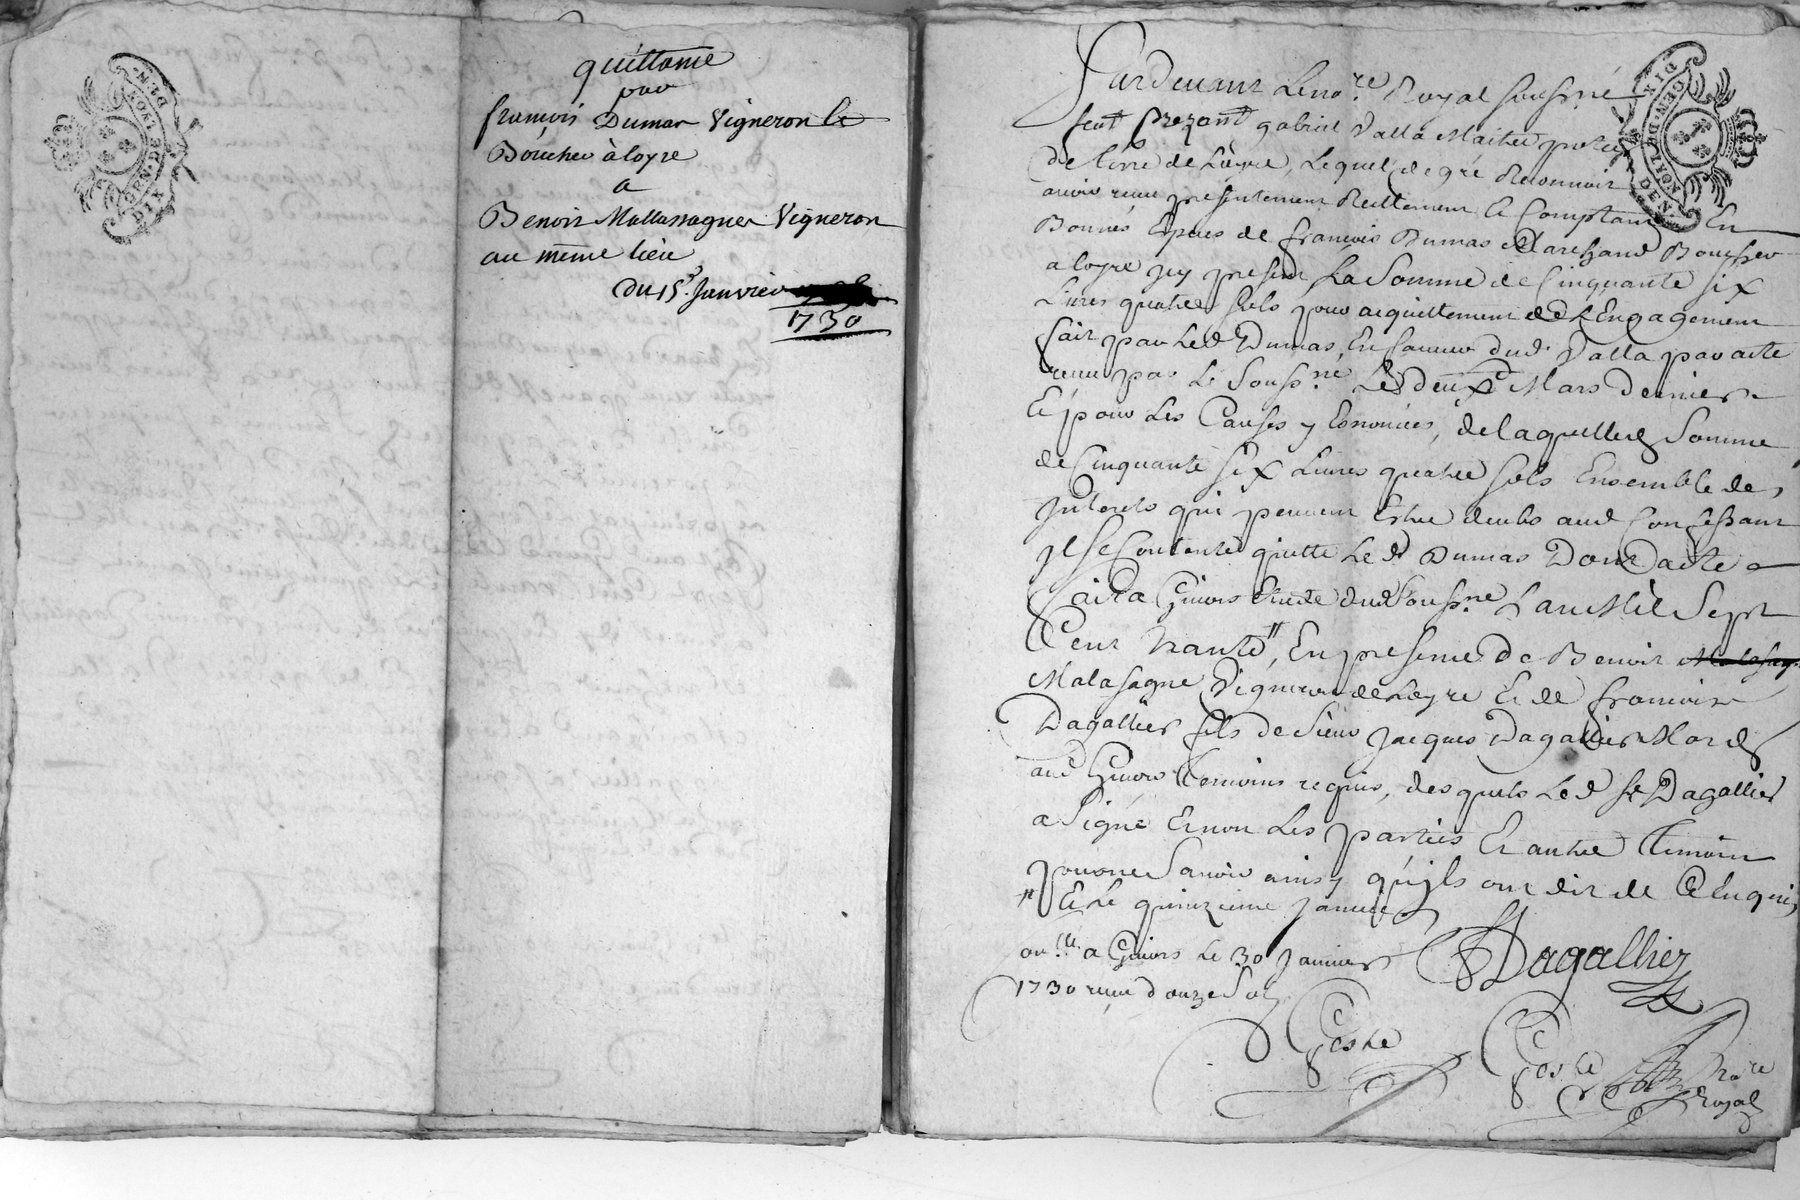 quittance
par
françois Dumas Vigneron Et
Boucher à loyre
a
Benoit Mallassagne Vigneron
au même lieu
du 15e Janvier
1730
Pardevant Le no.re Royal sousné
feut prezant gabriel Dalla Maitre
de loire de Loyre, Lequel de gré Reconnoit
avoir receu presentement Reellement Et Comptant En
Bonnes Espces de francois Dumas Marchand Boucher
a loyre icy present La Somme de Cinquante six
Livres quatre sols pour acquittement de L Engagement
fait par Led Dumas, En faveur dud. Dalla par acte
receu par Le Sousp.né Le deux Mars dernier
Et pour Les Causes y Enoncées, de laquelle Somme
de Cinquante six Livres quatre sols Ensemble des
Interets qui peuvent Estre deubs aud Confessant
il se Contente quitte Led Dumas Dont acte
fait a Givors Etude dud Sousp.né L an Mil Sept
Cent trante ", En presence de Benoit
Malasagne Vigneron de Loyre Et de francois
Dagallier fils de Sieur Jacques Dagallier Mard
aud Givors temoins requis, desquels Led sr Dagallier
a Signé Et non Les parties Et autre temoin
pour ne Savoir ainsy qu'ils ont dit de Ce Enquis
" Et Le quinzieme Janvier
on.llé a Givors Le 30 Janvier
1730 receu douze Sols
Dagallier
Coste
Coste
no.re
Royal
DIX
DEN.
GEN.DE.LYON
DIX
DEN.
GEN.DE.LYON